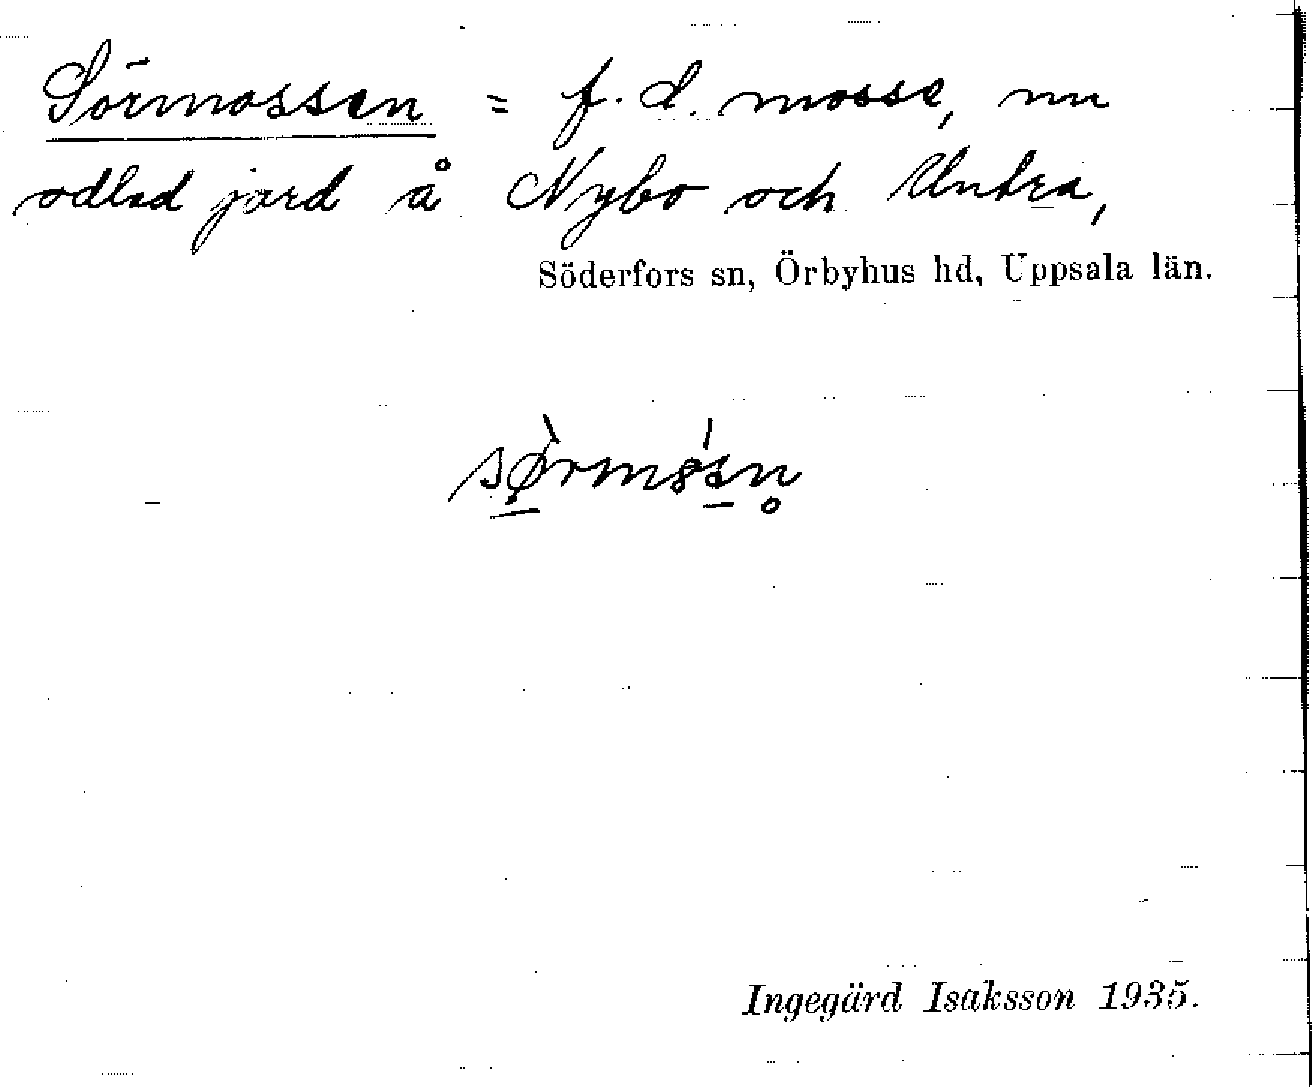 Sörmossen = f. d. mosse, nu
odlad jord å Nybo och Untra,
Söderfors sn, Örbyhus hd, Uppsala län.
Ingegärd Isaksson 1935.